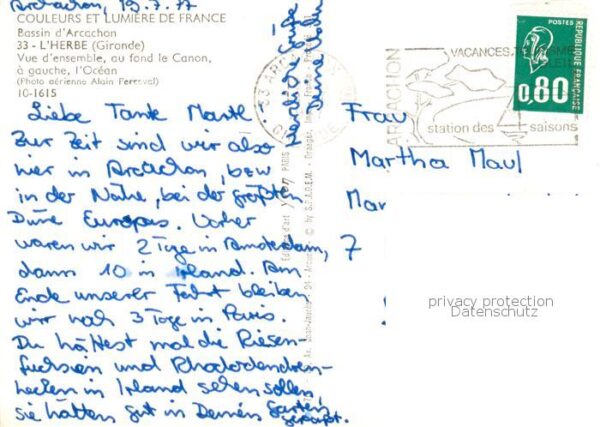 Arcachon, 19.7.77
COULEURS ET LUMIÈRE DE FRANCE
Bassin d'Arcachon
33 - L'HERBE (Gironde)
Vue d'ensemble, au fond le Canon,
à gauche, l'Océan
(Photo aérienne Alain Perceval)
10-1615
Liebe Tante Martl
Zur Zeit sind wir also
hier in Arcachon, bzw
in der Nähe, bei der größten
Düne Europas. Vorher
waren wir 2 Tage in Amsterdam,
dann 10 in Irland. Am
Ende unserer Fahrt bleiben
wir noch 3 Tage in Paris.
Du hättest mal die Riesen-
fuchsien und Rhododendren-
hecken in Irland sehen sollen,
sie hätten gut in Deinen Garten
gepaßt.
Herzliche Grüße
Deine
Editions d'art YVON PARIS
© by S.P.A.D.E.M.
Frau
Martha Maul
Mar
7
ARCACHON
VACANCES
station des saisons
POSTES
0,80
REPUBLIQUE FRANÇAISE
privacy protection
Datenschutz